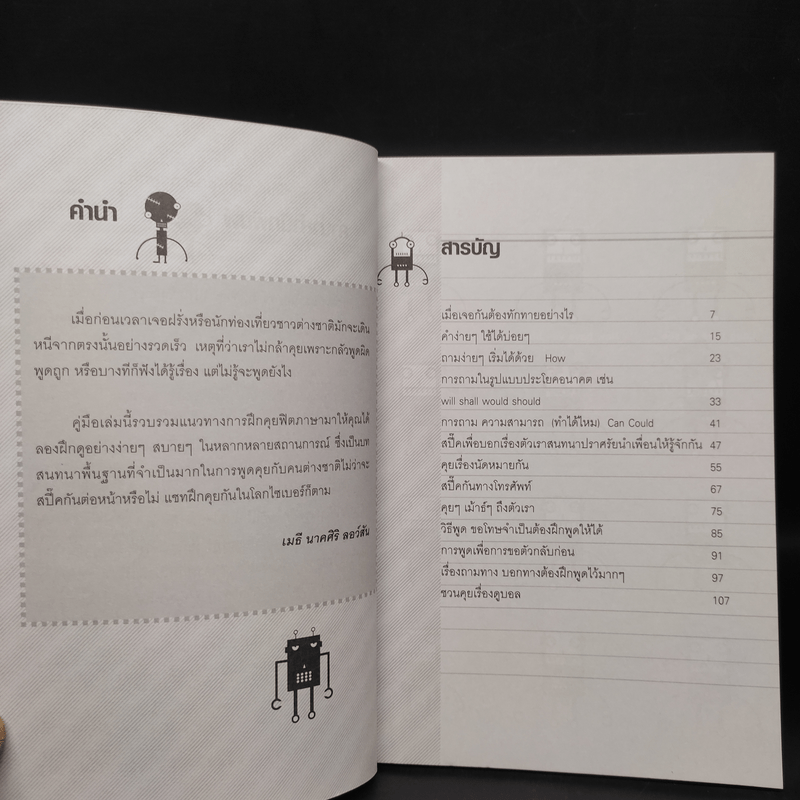 คำนำ
เมื่อก่อนเวลาเจอฝรั่งหรือนักท่องเที่ยวชาวต่างชาติมักจะเดิน
หนีจากตรงนั้นอย่างรวดเร็ว เหตุที่ว่าเราไม่กล้าคุยเพราะกลัวพูดผิด
พูดถูก หรือบางทีก็ฟังได้รู้เรื่อง แต่ไม่รู้จะพูดยังไง
คู่มือเล่มนี้รวบรวมแนวทางการฝึกคุยฟิตภาษามาให้คุณได้
ลองฝึกดูอย่างง่ายๆ สบายๆ ในหลากหลายสถานการณ์ ซึ่งเป็นบท
สนทนาพื้นฐานที่จำเป็นมากในการพูดคุยกับคนต่างชาติไม่ว่าจะ
สปี๊คกันต่อหน้าหรือไม่ แชทฝึกคุยกันในโลกไซเบอร์ก็ตาม
เมธี นาคศิริ ลอว์สัน
สารบัญ
เมื่อเจอกันต้องทักทายอย่างไร 7
คำง่ายๆ ใช้ได้บ่อยๆ 15
ถามง่ายๆ เริ่มได้ด้วย How 23
การถามในรูปแบบประโยคอนาคต เช่น
will shall would should 33
การถาม ความสามารถ (ทำได้ไหม) Can Could 41
สปี๊คเพื่อบอกเรื่องตัวเราสนทนาปราศรัยนำเพื่อนให้รู้จักกัน 47
คุยเรื่องนัดหมายกัน 55
สปี๊คกันทางโทรศัพท์ 67
คุยๆ เม้าธ์ๆ ถึงตัวเรา 75
วิธีพูด ขอโทษจำเป็นต้องฝึกพูดให้ได้ 85
การพูดเพื่อการขอตัวกลับก่อน 91
เรื่องถามทาง บอกทางต้องฝึกพูดไว้มากๆ 97
ชวนคุยเรื่องดูบอล 107